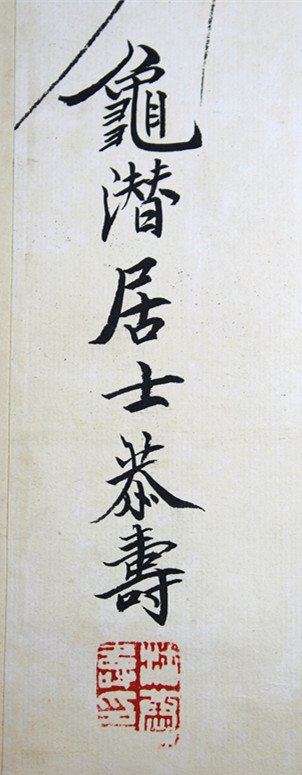 龜潜居士恭壽